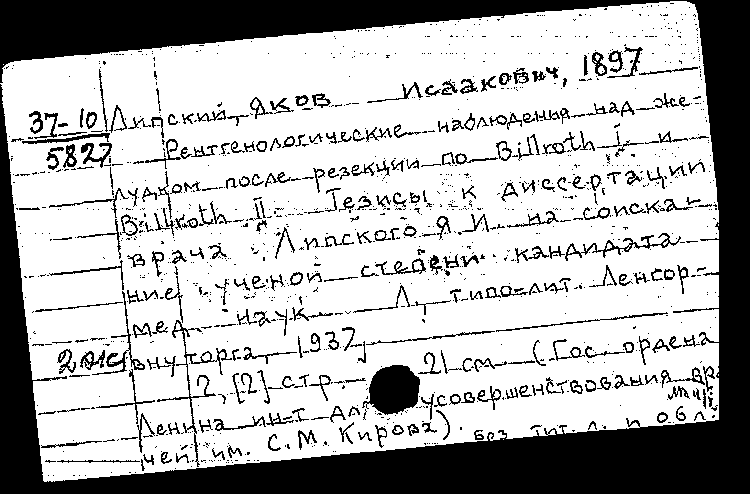 37-10 Липский, Яков Исаакович, 1897
5827 Рентгенологические наблюдения над же-
лудком после резекции по Billroth I и
Billroth II. Тезисы к диссертации
врача Липского Я. И. на соиска-
ние ученой степени кандидата
мед. наук Л., типо-лит. Ленгор-
внуторга, 1937,
2, [2] стр. 21 см. (Гос. ордена
Ленина ин-т для усовершенствования вра
чей им. С. М. Кирова).
Без тит. л. и обл.